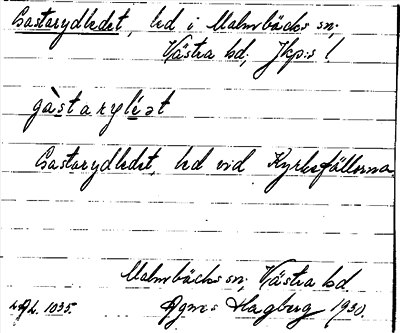 Gastarydledet, led i Malmbäcks sn;
Västra hd, Jkp:s l
gàstaryléət
Gastarydledet, led vid Kyrkefällorna
Malmbäcks sn; Västra hd
Agnes Hagberg 1930
1035.